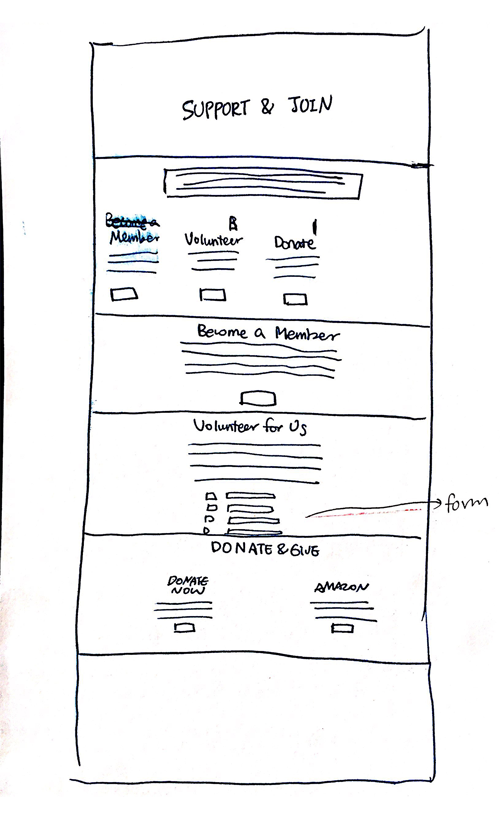 SUPPORT & JOIN
Become a
Member
Volunteer
Donate
Become a Member
Volunteer for Us
form
DONATE & GIVE
DONATE
NOW
AMAZON